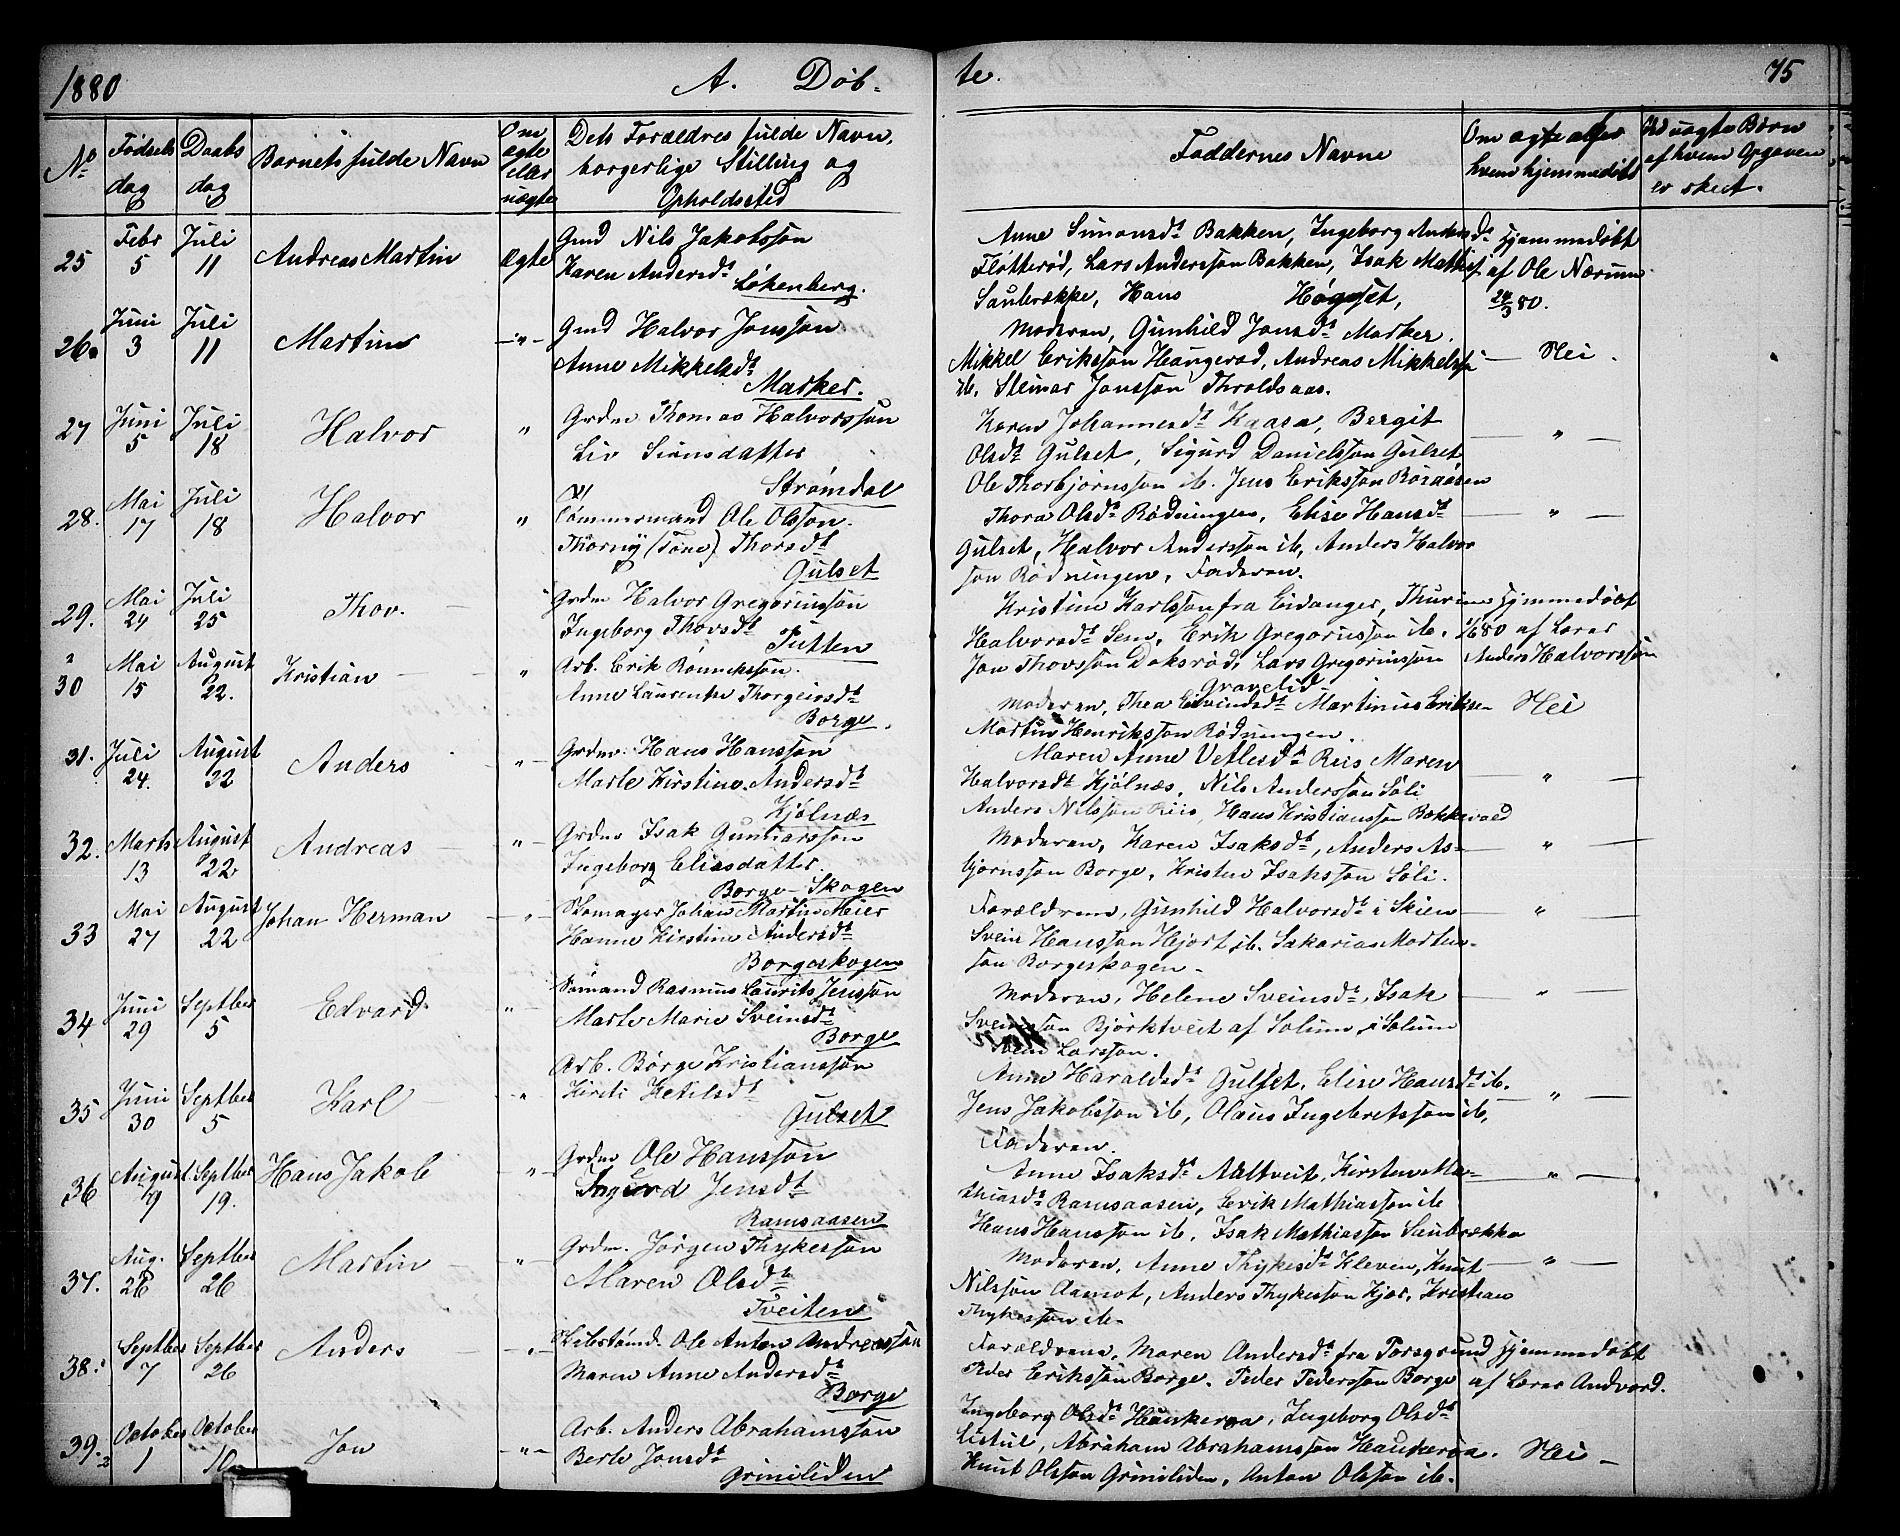 1880 A. Døb- te. 75
No Fødsels dag Daabs dag Barnets fulde Navn Om ægte eller uægte Dets Forældres fulde Navn, borgerlige Stilling og Opholdssted Faddernes Navne Om og af hvem hjemmedøbt Ved uægte Børn af hvem Opgaven er skeet.
25 Febr 5 Juli 11 Andreas Martin Ægte
Gmd Nils Jakobsson
Karen Andersdt
Løkenberg.
Anne Simonsdt Bakken, Ingeborg Andersdt
Fløtterød, Lars Andersson Bakken, Isak Mathisf
Saubrække, Hans Høgset,
Hjemmedøbt
af Ole Nærum
24/3 80.
26 Juni 3 Juli 11 Martin -"-
Gmd Halvor Jonsson
Anne Mikkelsdt
Marker.
Moderen, Gunhild Jonsdt Marker.
Mikkel Eriksson Haugerød, Andreas Mikkelss
ib. Steinar Jonsson Throldsaas.
Nei.
27 Juni 5 Juli 18 Halvor "
Grdm Thomas Halvorsson
Liv Simsdatter
Strømdal
Karen Johannesdt Kaasa, Bergit
Olsdt Gulset, Sigurd Danielsson Gulset
Ole Thorbjørnsson ib. Jens Eriksson Røraasen
"
28. Mai 17 Juli 18 Halvor "
Tømmermand Ole Olsson.
Thorny (Tone) Thorsdt
Gulset
Thora Olsdt Rødningen, Elise Hansdt
Gulset, Halvor Andersson ib, Anders Halvor
son Rødningen, Faderen.
"
29. Mai 24 Juli 25 Thov. "
Grdm Halvor Gregoriusson
Ingeborg Thovsdt
Tutten
Kristine Karlsson fra Eidanger, Thurine
Halvorsdt Sem, Erik Gregoriusson ib.
Jon Thovsson Doksrød, Lars Gregoriusson
Gravelid
Hjemmedøbt
1/6 80 af Lærer
Anders Halvorsson
30 Mai 15 August 22. Kristian "
Arb. Erik Rønniksson.
Anne Laurentse Thorgeirsdt
Borge.
Moderen, Thea Eivindsdt Martinius Eriks-
Martin Henriksson Rødningen.
Nei
31. Juli 24. August 22 Anders -"-
Grdm. Hans Hansson
Marte Kirstine Andersdt
Kjølnæs
Maren Anne Vetlesdt Riis Maren
Halvorsdt Kjølnæs, Nils Andersson Søli
Anders Nilsson Riis, Hans Kristiansson Bakkevold
"
32. Marts 13 August 22 Andreas -"-
Grdm Isak Gunnarsson
Ingeborg Eliasdatter.
Borge-Skogen
Moderen, Karen Isaksdt, Anders As-
bjørnsson Borge, Kristen Isaksson Søli.
"
33 Mai 27 August 22 Johan Herman -"-
Skomager Johan Martin Meier
Hanne Kirstine Andersdt
Borgeskogen
Forældrene, Gunhild Halvorsdt i Skien
Svein Hansson Hjort ib. Sakarias Morten-
son Borgeskogen-
"
34 Juni 29 Septber 5 Edvard -"-
Sømand Rasmus Laurits Jensson
Marte Marie Sveinsdt
Borge
Moderen, Helene Sveinsdt, Isak
Sveinsson Bjørktveit af Solum, i Solum
Svein Larsson.
"
35 Juni 30 Septber 5 Karl "
Arb. Børge Kristiansson
Kirsti Ketilsdt
Gulset
Anne Haraldsdt Gulset, Elise Hansdt ib.
Jens Jakobsson ib, Olaus Ingebretsson ib,
Faderen.
"
36 August 9 Septber 19. Hans Jakob "
Grdm Ole Hansson
Ingerd Jensdt
Ramsaasen
Anne Isaksdt Aaltveit, Kirsten Ma-
thiasdt Ramsaasen, Gerik Mathiasson ib
Hans Hansson ib, Isak Mathiasson Saubrækka
"
37. Aug. 28 Septber 26 Martin -"-
Grdm. Jörgen Thykesson
Maren Olsdt
Tveiten
Moderen, Anne Thykesdt Kleven, Knut
Nilsson Aamot, Anders Thykesson Kjær, Kristian
Thykesson ib-
"
38. Septber 7 Septber 26 Anders -"-
Skibstømd Ole Anton Andreasson
Maren Anne Andersdt
Borge
Forældrene, Maren Andersdt fra Porsgrund
Peder Eriksson Borge. Peder Pedersson Borge
Hjemmedøbt
af Lærer Andvord.
39. October 1 October 10 Jon -"-
Arb. Anders Abrahamsson
Berte Jonsdt
Grimiliden
Ingeborg Olsdt Haukeraa, Ingeborg Olsdt
Listul, Abraham Abrahamsson Haukeraa.
Knut Olsson Grimiliden, Anton Olsson ib.
Nei-